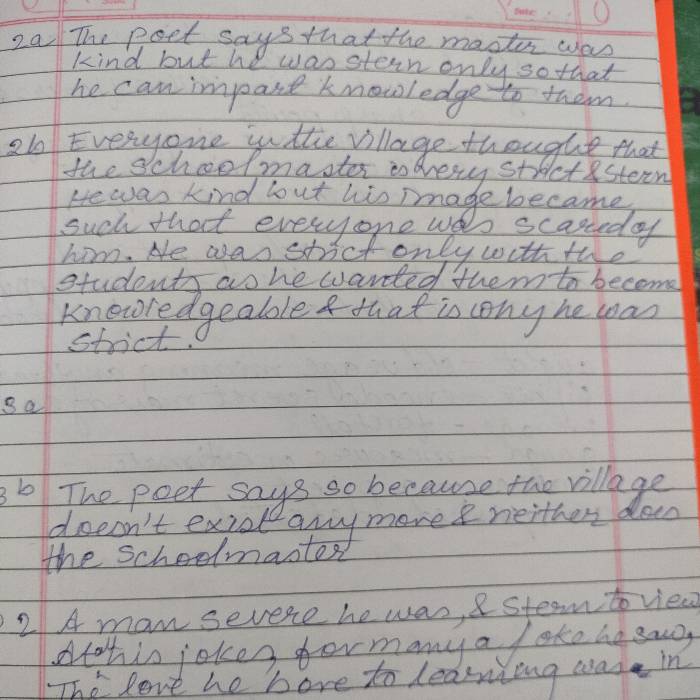 2a The poet says that the master was
kind but he was stern only so that
he can impart knowledge to them.
2b Everyone in the village thought that
the schoolmaster is very strict & stern
He was kind but his image became
such that everyone was scared of
him. He was strict only with the
students as he wanted them to become
knowledgeable & that is why he was
strict.
3a
3b The poet says so because the village
doesn't exist any more & neither does
the schoolmaster
2 A man severe he was, & stern to view
At his jokes, for many a joke he
The love he bore to learning was in